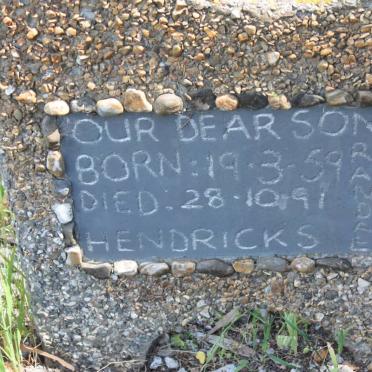 OUR DEAR SON
BORN: 19-3-59
DIED. 28-10.91
HENDRICKS